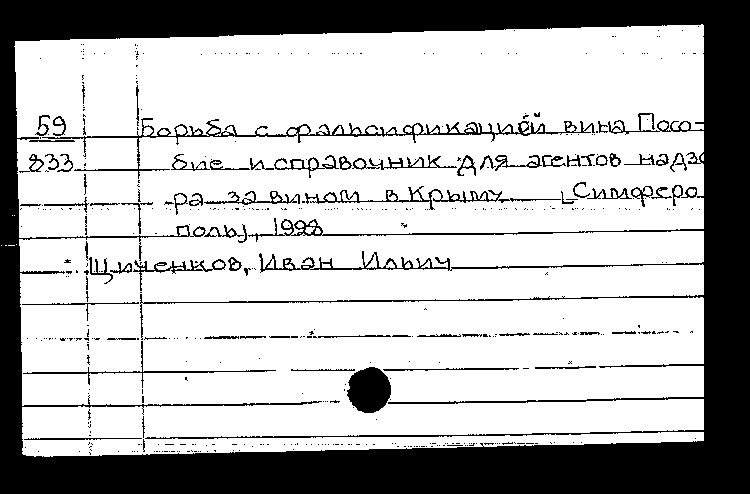 59 Борьба с фальсификацией вина. Посо-
833 бие и справочник для агентов надзо
ра за вином в Крыму. [Симферо
поль], 1928
Щиченков, Иван Ильич